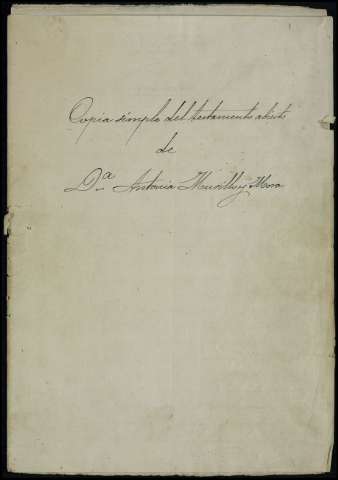 Copia simple del testamento abierto
de
D.ª Antonia Murilly y Mora